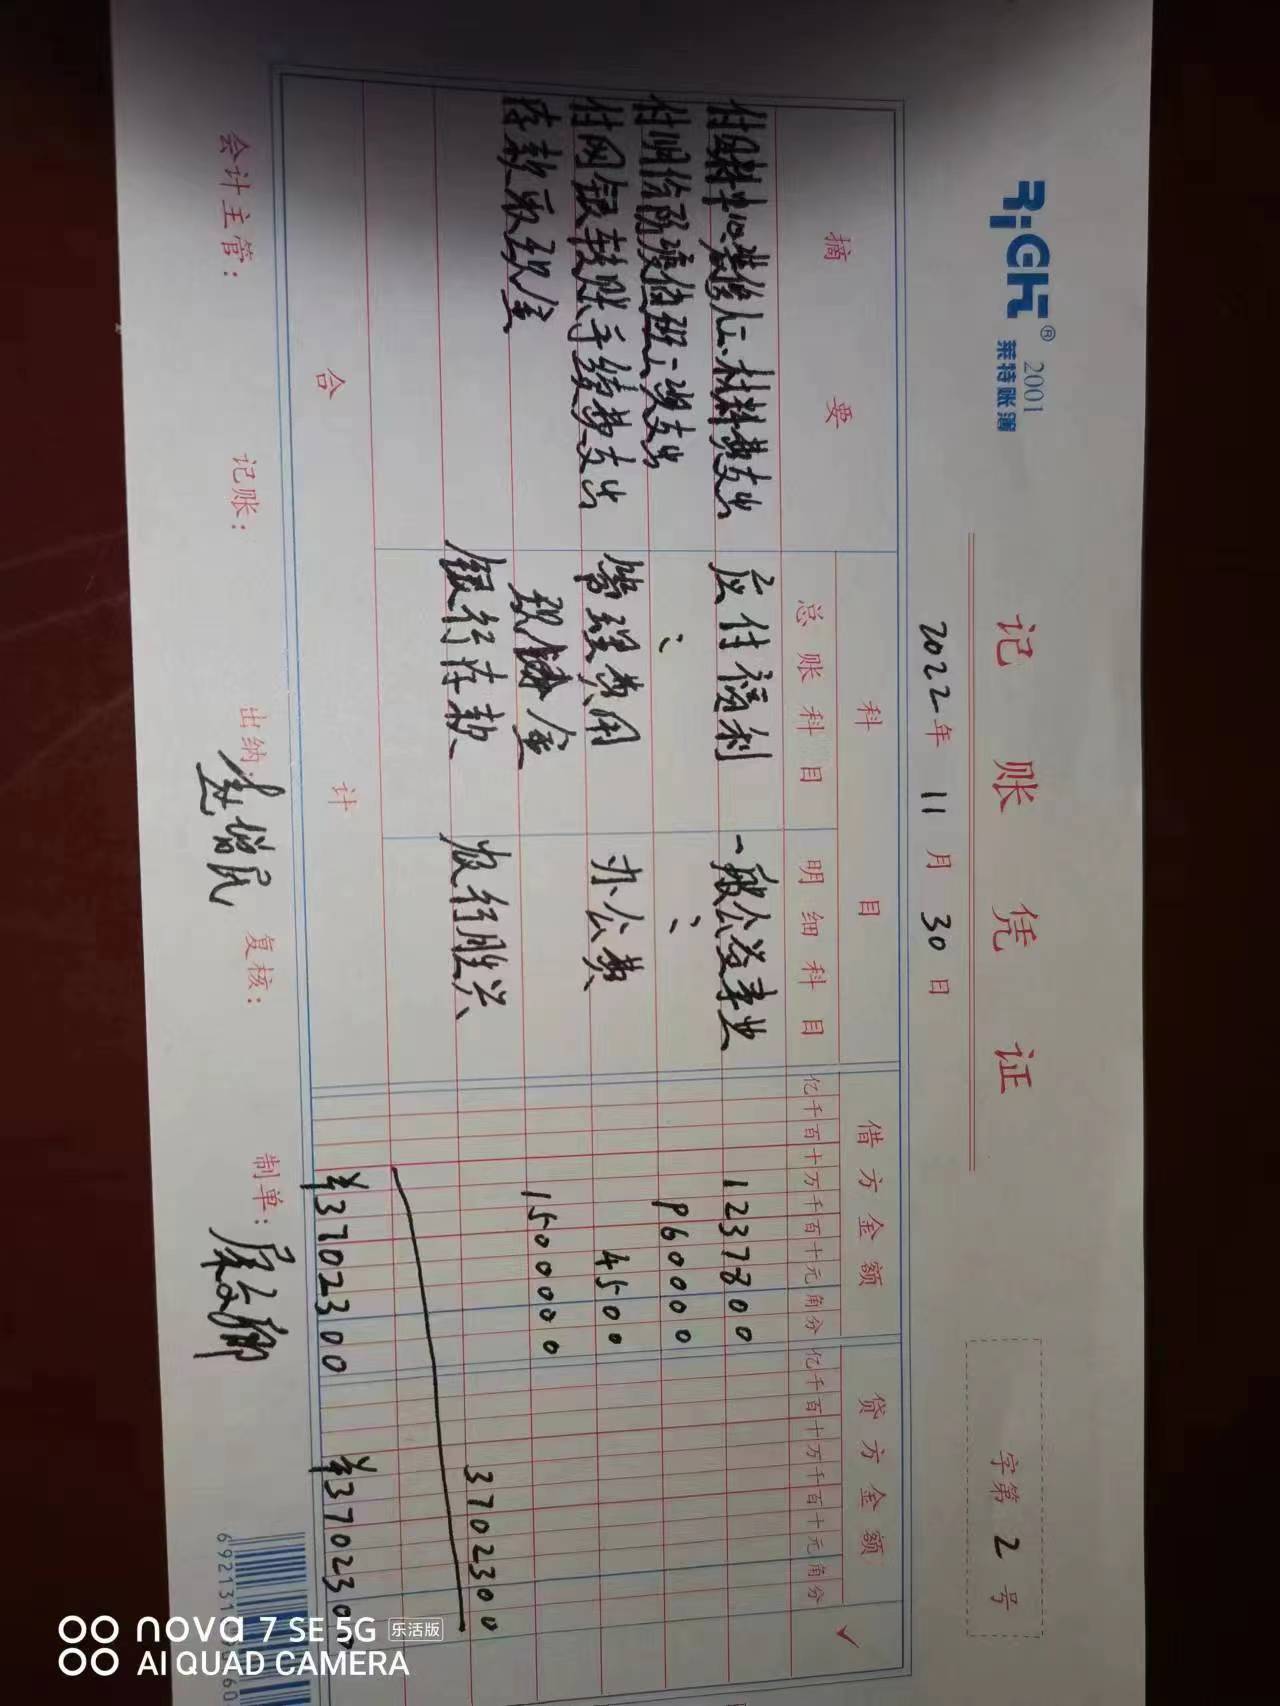 RiGHt®
2001
莱特账簿
记账凭证
2022年 11月 30日
字第 2 号
摘要
科目
借方金额
贷方金额
✓
总账科目
明细科目
亿千百十万千百十元角分
亿千百十万千百十元角分
材料费支出
应付福利
一般公益事业
1237800
付11月份防疫值班二次支出
〃
〃
960000
付网银转账手续费支出
管理费用
办公费
4500
存款取现金
现金
1500000
银行存款
农行胜兴
3702300
合计
¥3702300
¥3702300
会计主管:
记账:
出纳:
复核:
制单:
nova 7 SE 5G 乐活版
AI QUAD CAMERA